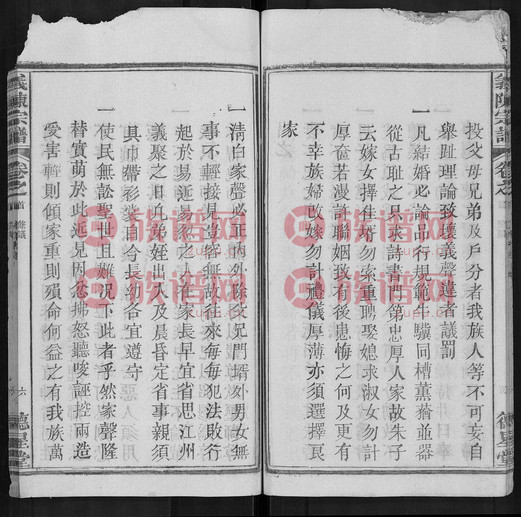 義陳宗譜
卷之一
投父母兄弟及戶分者我族人等不可妄自
舉趾理論致壞義聲違者議罰
一凡結婚必論品行規範牛驥同槽薰蕕並器
從古恥之只求詩書門第忠厚人家故朱子
云嫁女擇佳婿勿索重聘娶媳求淑女勿計
厚奩若漫計聯姻致有後患悔之何及
一不幸族婦改嫁勿計禮儀厚薄亦須選擇良
家
一清白家聲必正內外除父兄門壻外男女無
事不輕接見豈容無故往來每每犯法敗行
起於易近易家之人為家長早宜省思江州
義聚之日凡弟姪出入及晨昏定省事親須
具巾帶衫裳自今長幼各宜遵守
一使民無訟聖世且難況下此者乎然家聲隆
替實萌於此遠見因忿拂怒聽唆誣控兩造
受害輕則傾家重則殞命何益之有我族萬
義陳宗譜
卷之一
六
德星堂
德星堂
族谱网